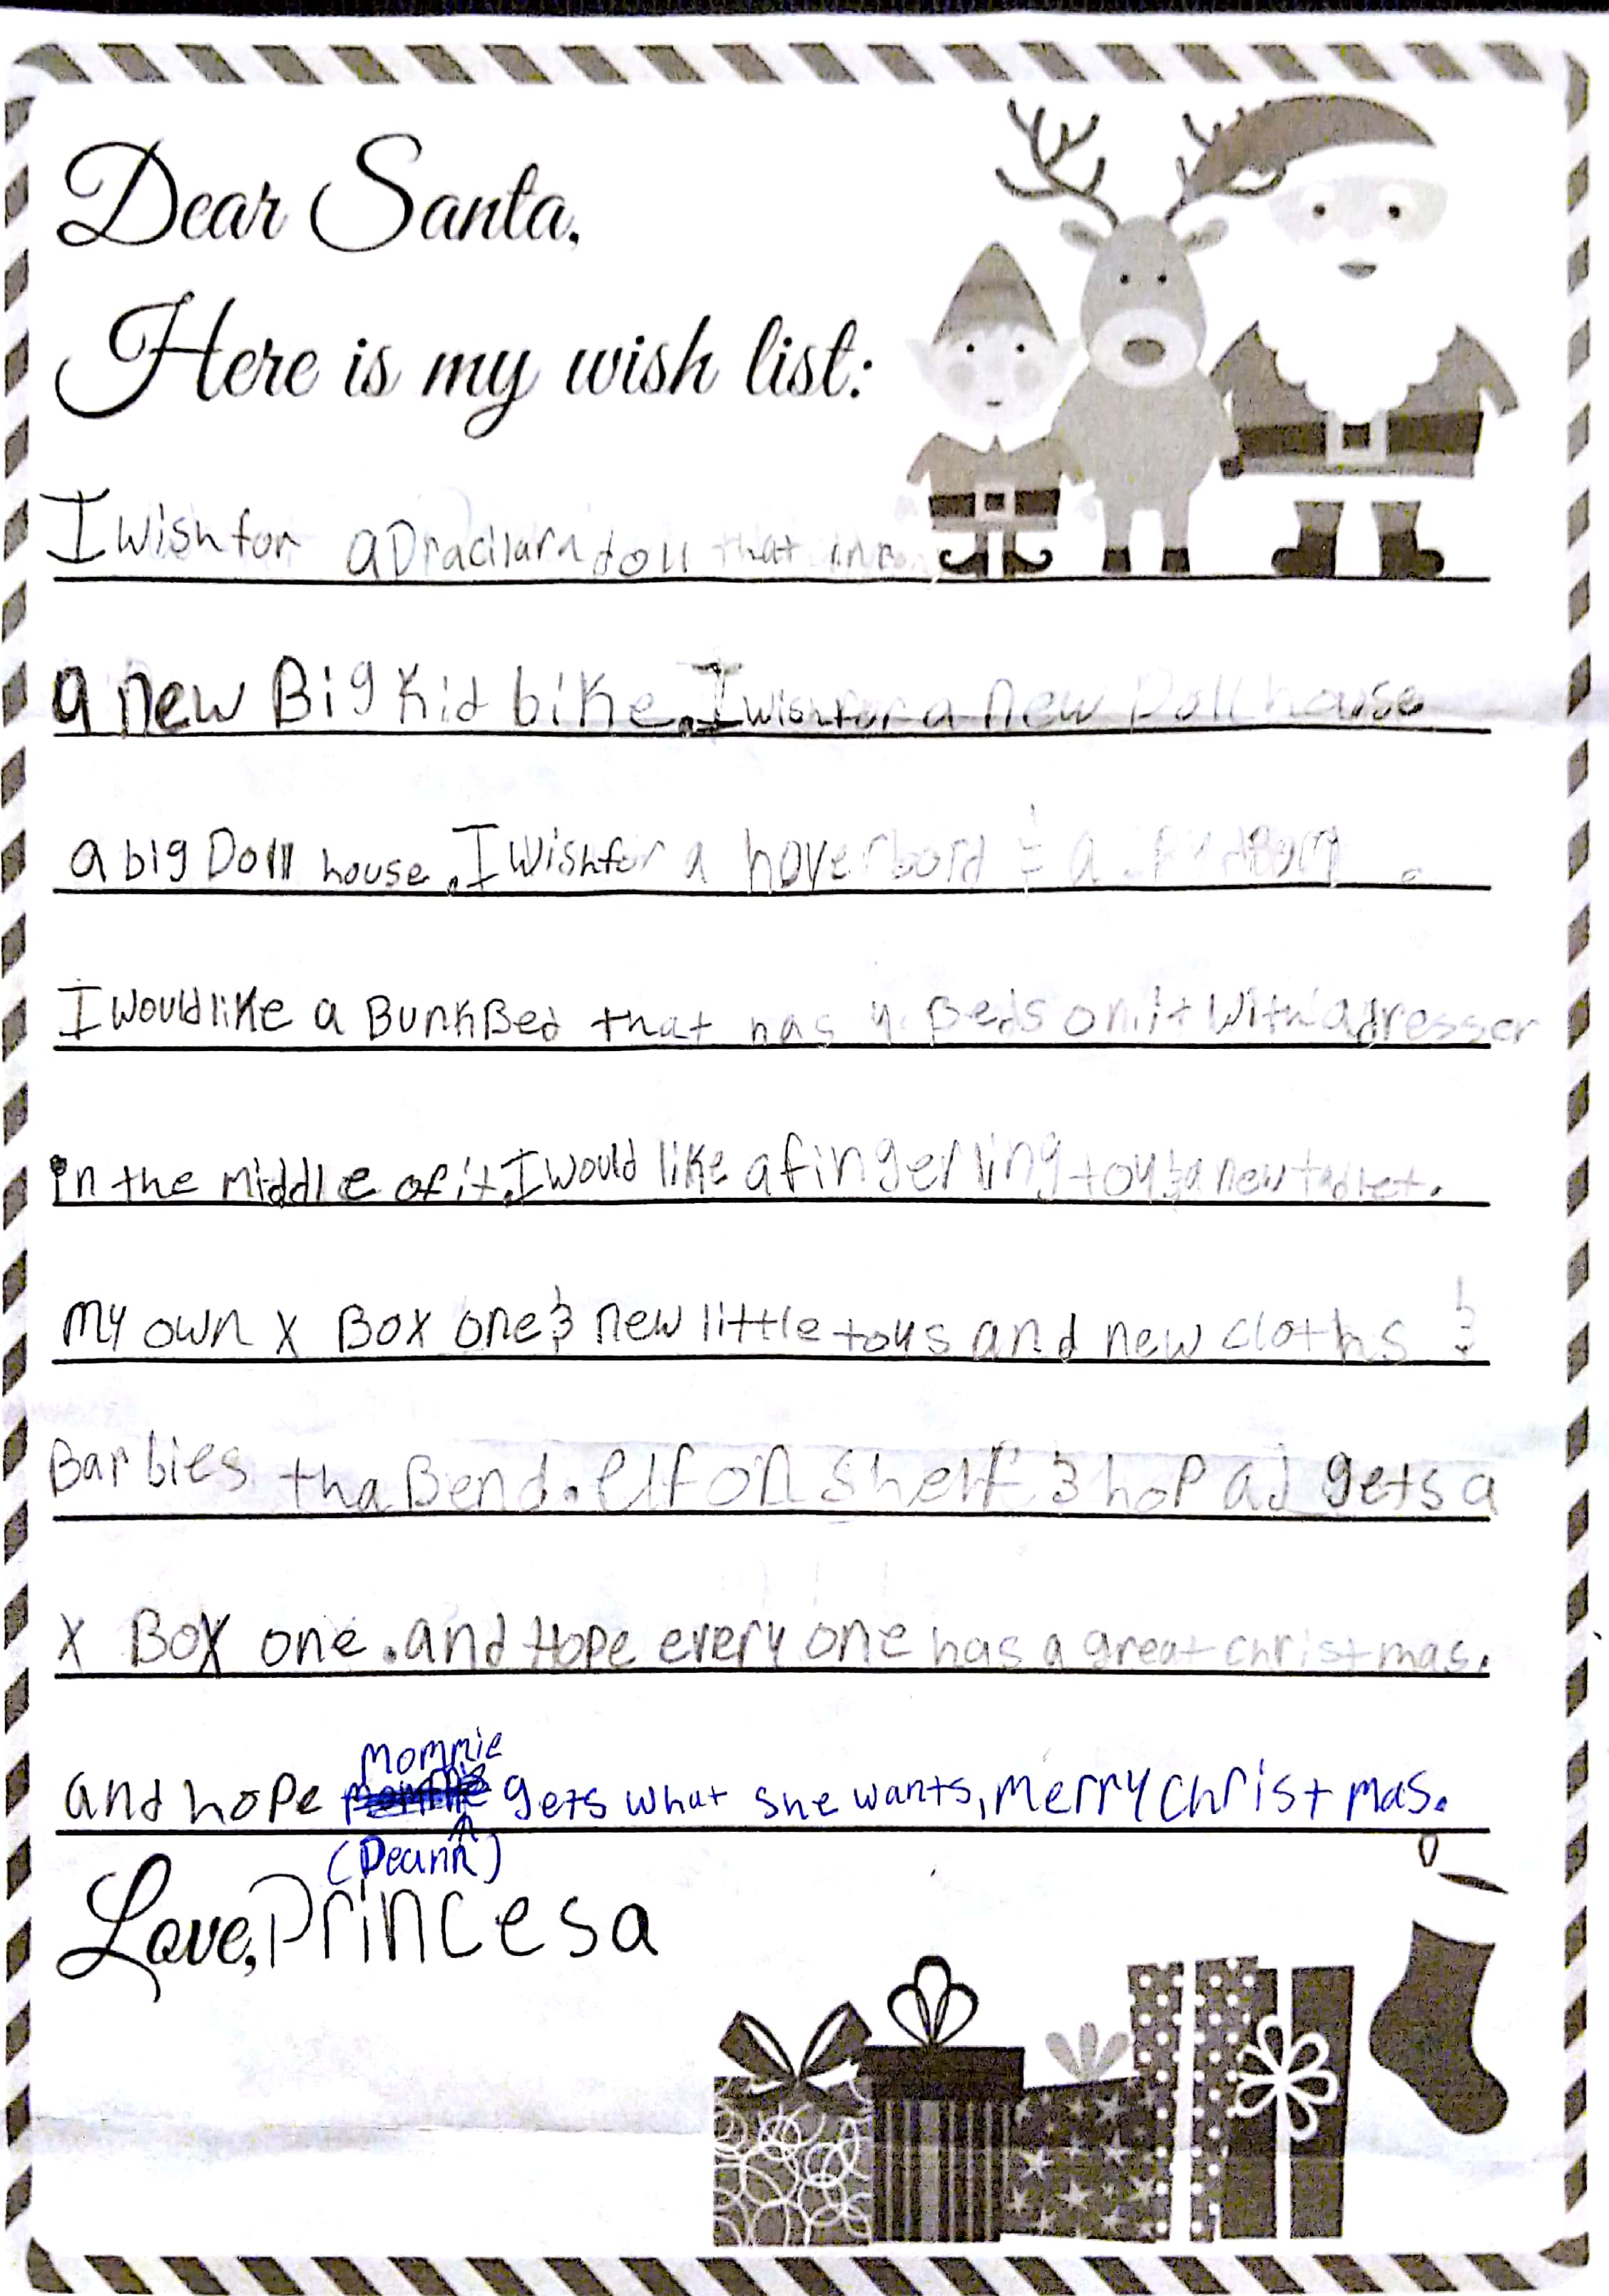 Dear Santa,
Here is my wish list:
I wish for a Dracilarn doll that
a new Big Kid bike. I wish for a new Doll house
a big Doll house. I wish for a hoverbord & a
I would like a BunkBed that has 4 Beds on it with a dresser
in the middle of it. I would like a fingerling toy & a new tablet.
my own X Box one & new little toys and new cloths &
Barbies tha Bend. elf on shelf & hop ad gets a
X Box one. and Hope every one has a great christmas.
Mommie
and hope gets what she wants, merry christmas.
(Deann)
Love, Princesa